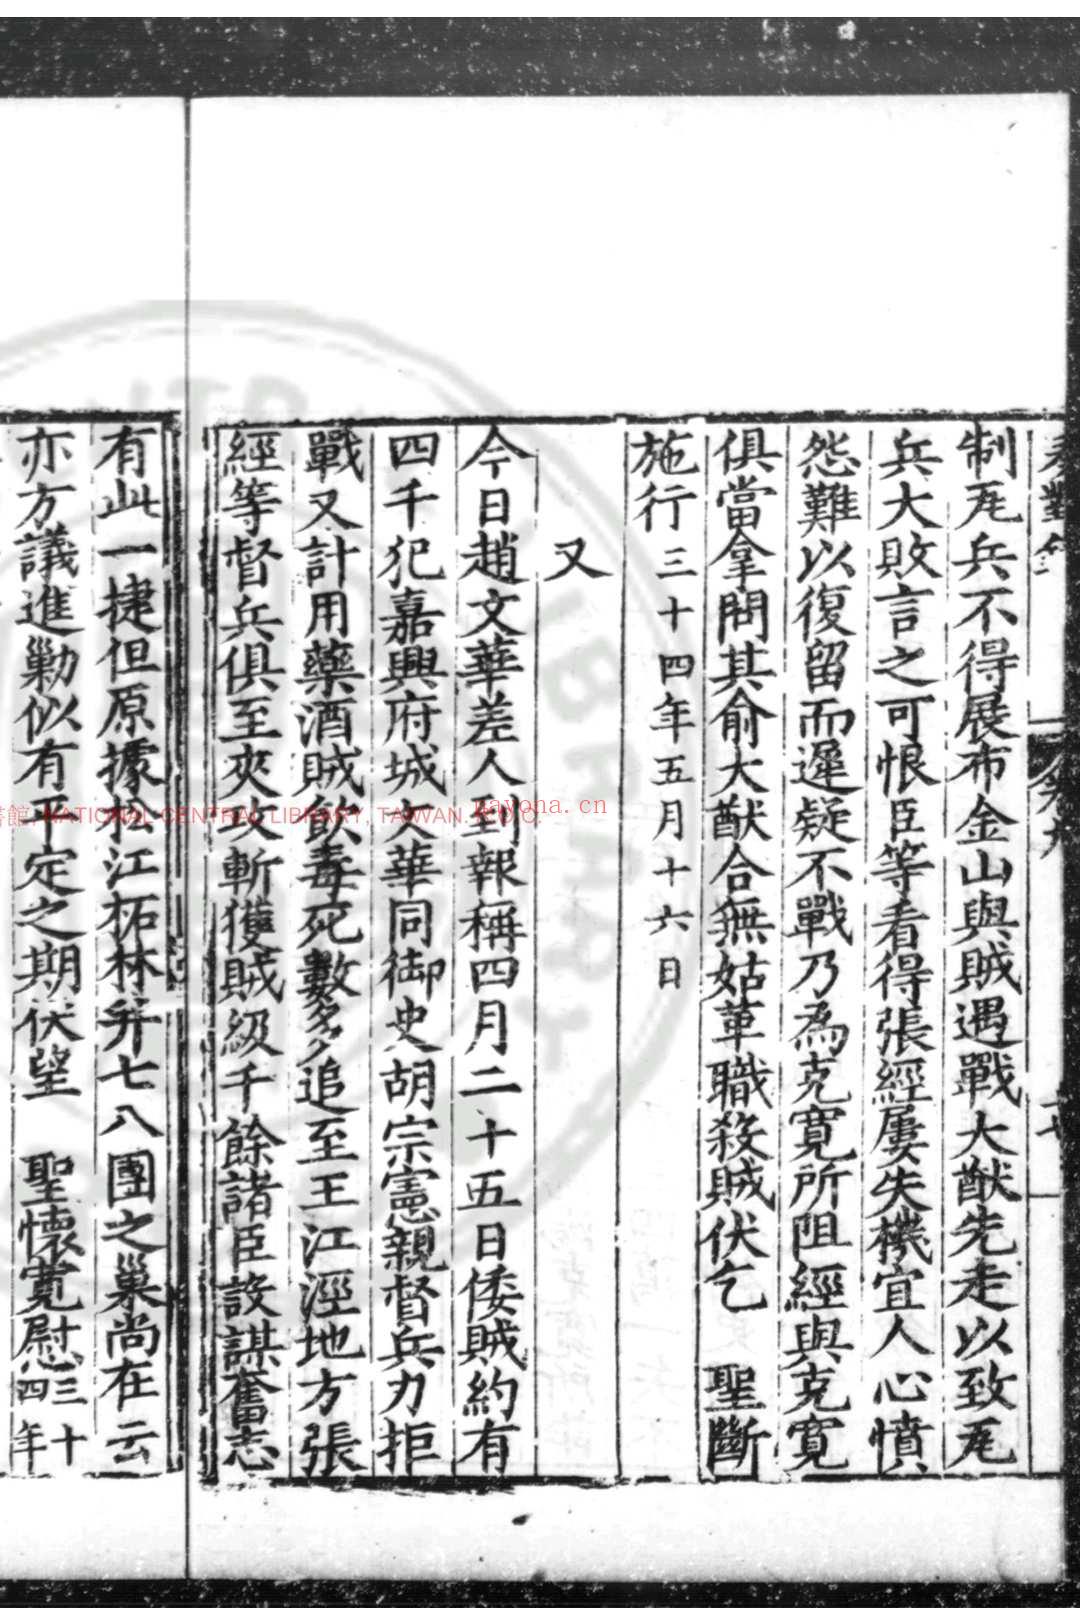 制尾兵不得展布金山與賊遇戰大猷先走以致尾
兵大敗言之可恨臣等看得張經屢失機宜人心憤
怨難以復留而遲疑不戰乃為克寬所阻經與克寬
俱當拿問其俞大猷合無姑革職殺賊伏乞 聖斷
施行三十四年五月十六日
又
今日趙文華差人到報稱四月二十五日倭賊約有
四千犯嘉興府城文華同御史胡宗憲親督兵力拒
戰又計用藥酒賊飲毒死數多追至王江涇地方張
經等督兵俱至夾攻斬獲賊級千餘諸臣設謀奮志
有此一捷但原據松江柘林并七八團之巢尚在云
亦方議進勦似有平定之期伏望 聖懷寬慰三十四年
NATIONAL CENTRAL LIBRARY, TAIWAN, R.O.C.
nayona.cn